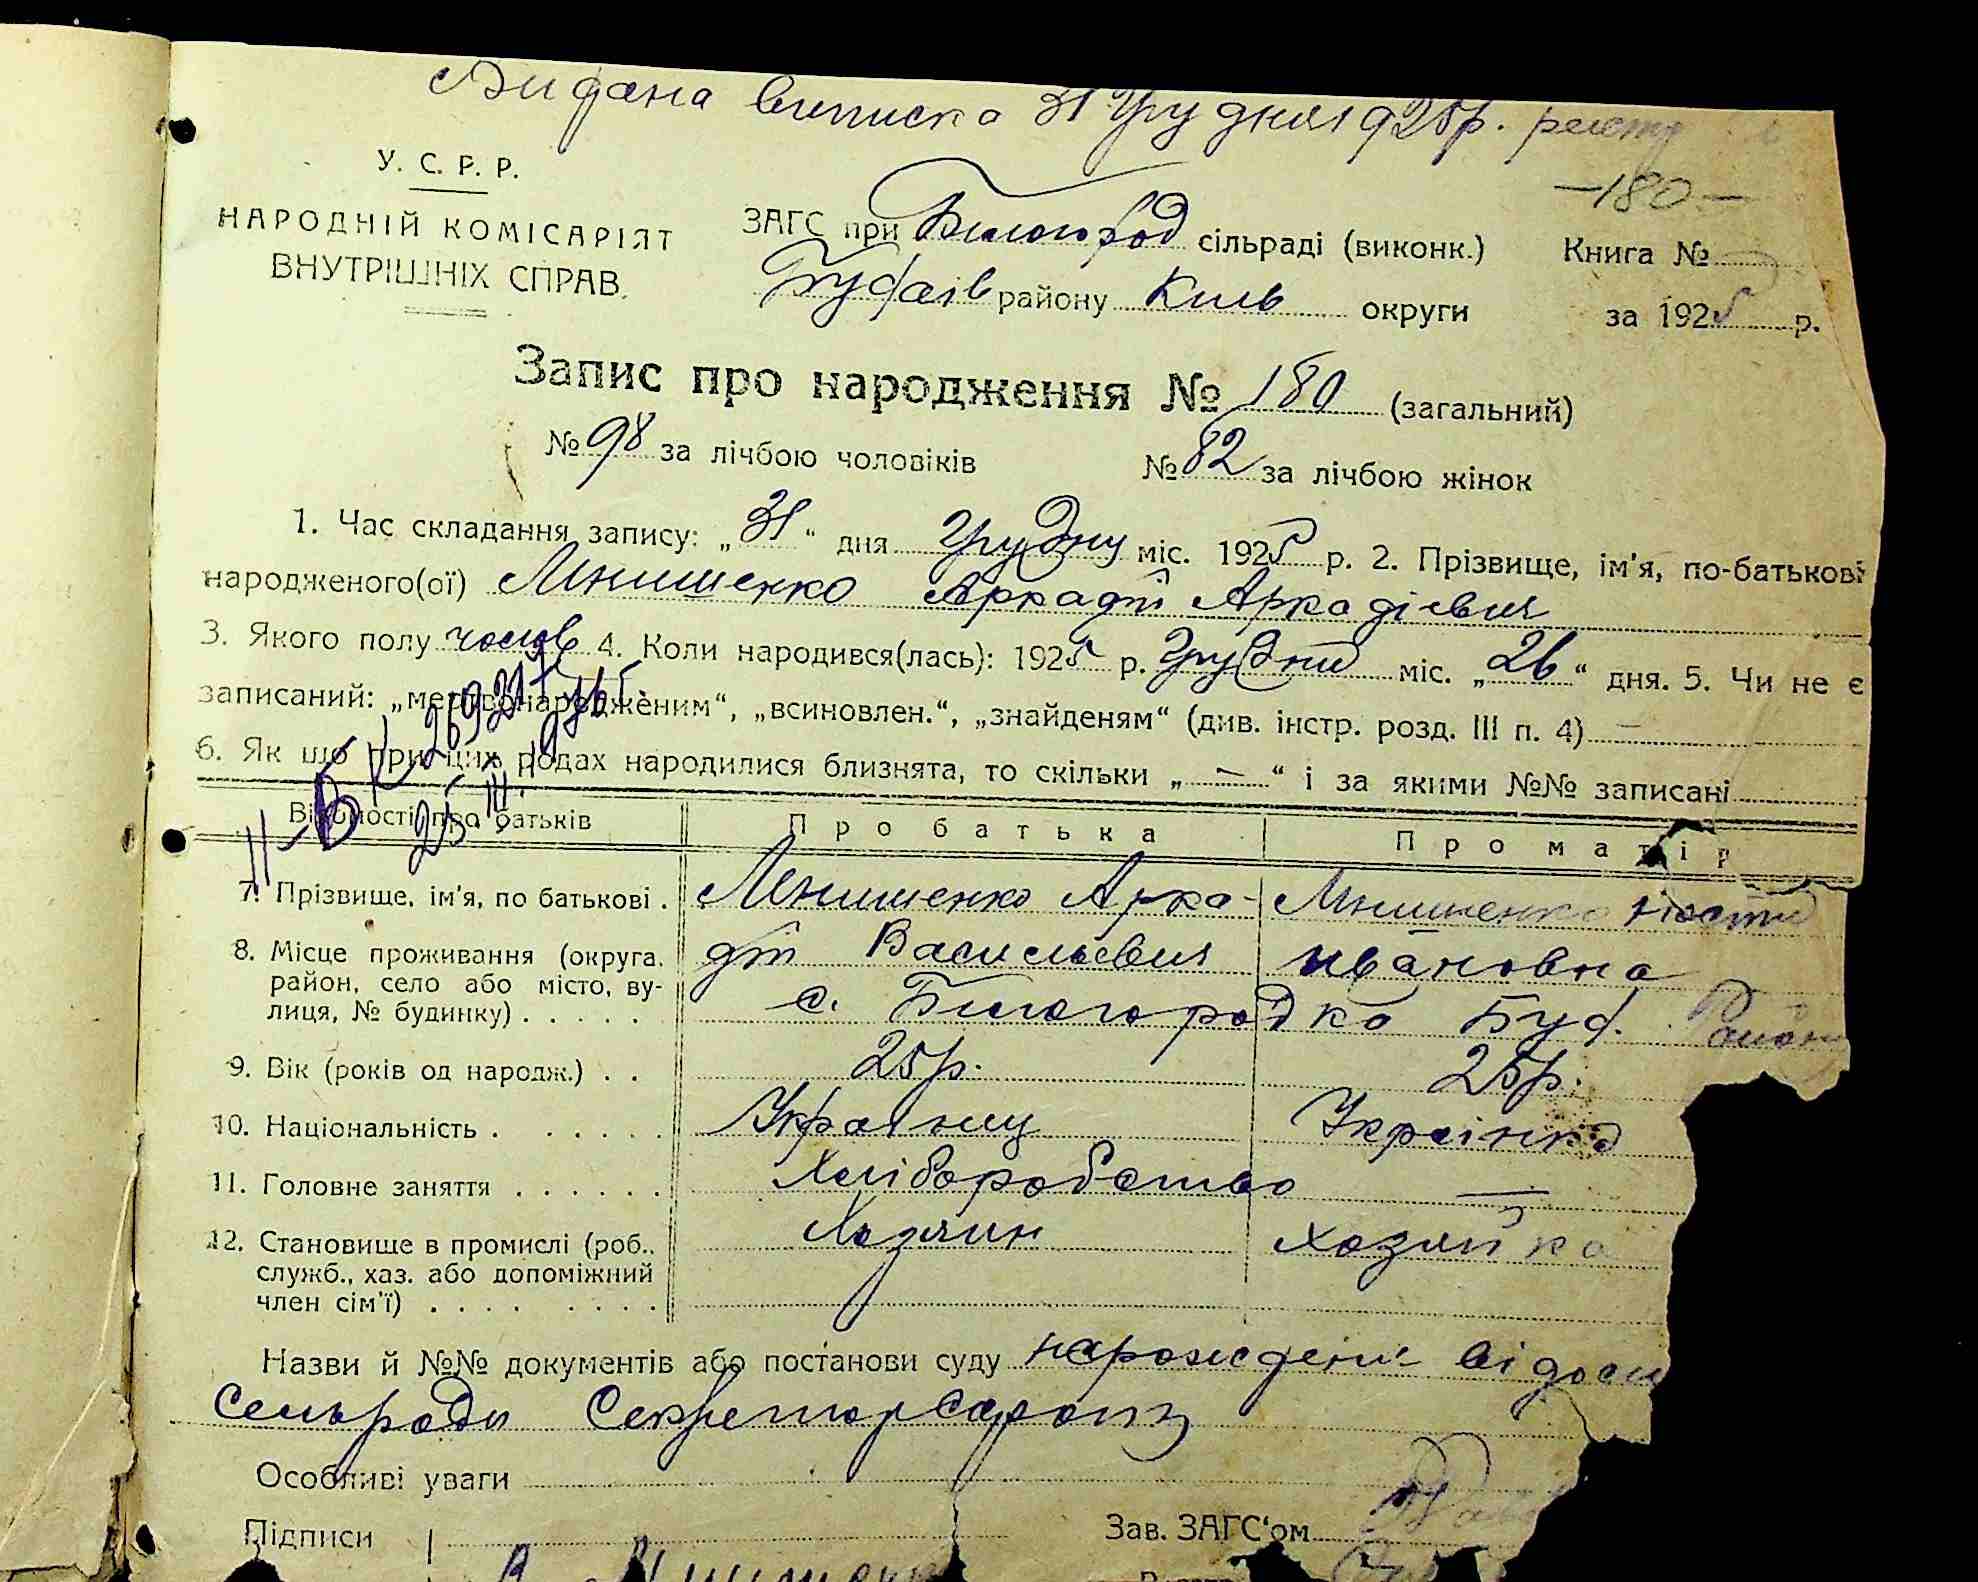 Видана виписка 31 Грудня 1925р. реєстр
У. С. Р. Р.
НАРОДНІЙ КОМІСАРІЯТ
ВНУТРІШНІХ СПРАВ.
—180—
ЗАГС при Билогород сільраді (виконк.) Книга №
Будаїв району Київ округи за 1925 р.
Запис про народження № 180 (загальний)
№ 98 за лічбою чоловіків № 82 за лічбою жінок
1. Час складання запису: „31“ дня Грудну міс. 1925 р. 2. Прізвище, ім'я, по-батькові
народженого(ої) Мнишенко Аркадій Аркадієвич
3. Якого полу чолов 4. Коли народився(лась): 1925 р. Грудни міс. „26“ дня. 5. Чи не є
записаний: „мертвонародженим“, „всиновлен.“, „знайденям“ (див. інстр. розд. III п. 4) —
6. Як що при цих родах народилися близнята, то скільки „—“ і за якими №№ записані
Відомості про батьків Про батька Про матір
7. Прізвище, ім'я, по батькові . Мнишенко Арка- Мнишенко Настя
дій Васильевич Ивановна
8. Місце проживання (округа, район, село або місто, ву-
лиця, № будинку) . . . . . с. Билогородка Буд. Район
9. Вік (років од народж.) . . 25р. 25р.
10. Національність . . . . . . Украінец Украінка
11. Головне заняття . . . . . . Хліборобство —
12. Становище в промислі (роб., Хозяин Хозяйка
служб., хаз. або допоміжний
член сім'ї) . . . . . . . . .
Назви й №№ документів або постанови суду
сельради
Особливі уваги
Підписи Зав. ЗАГС'ом